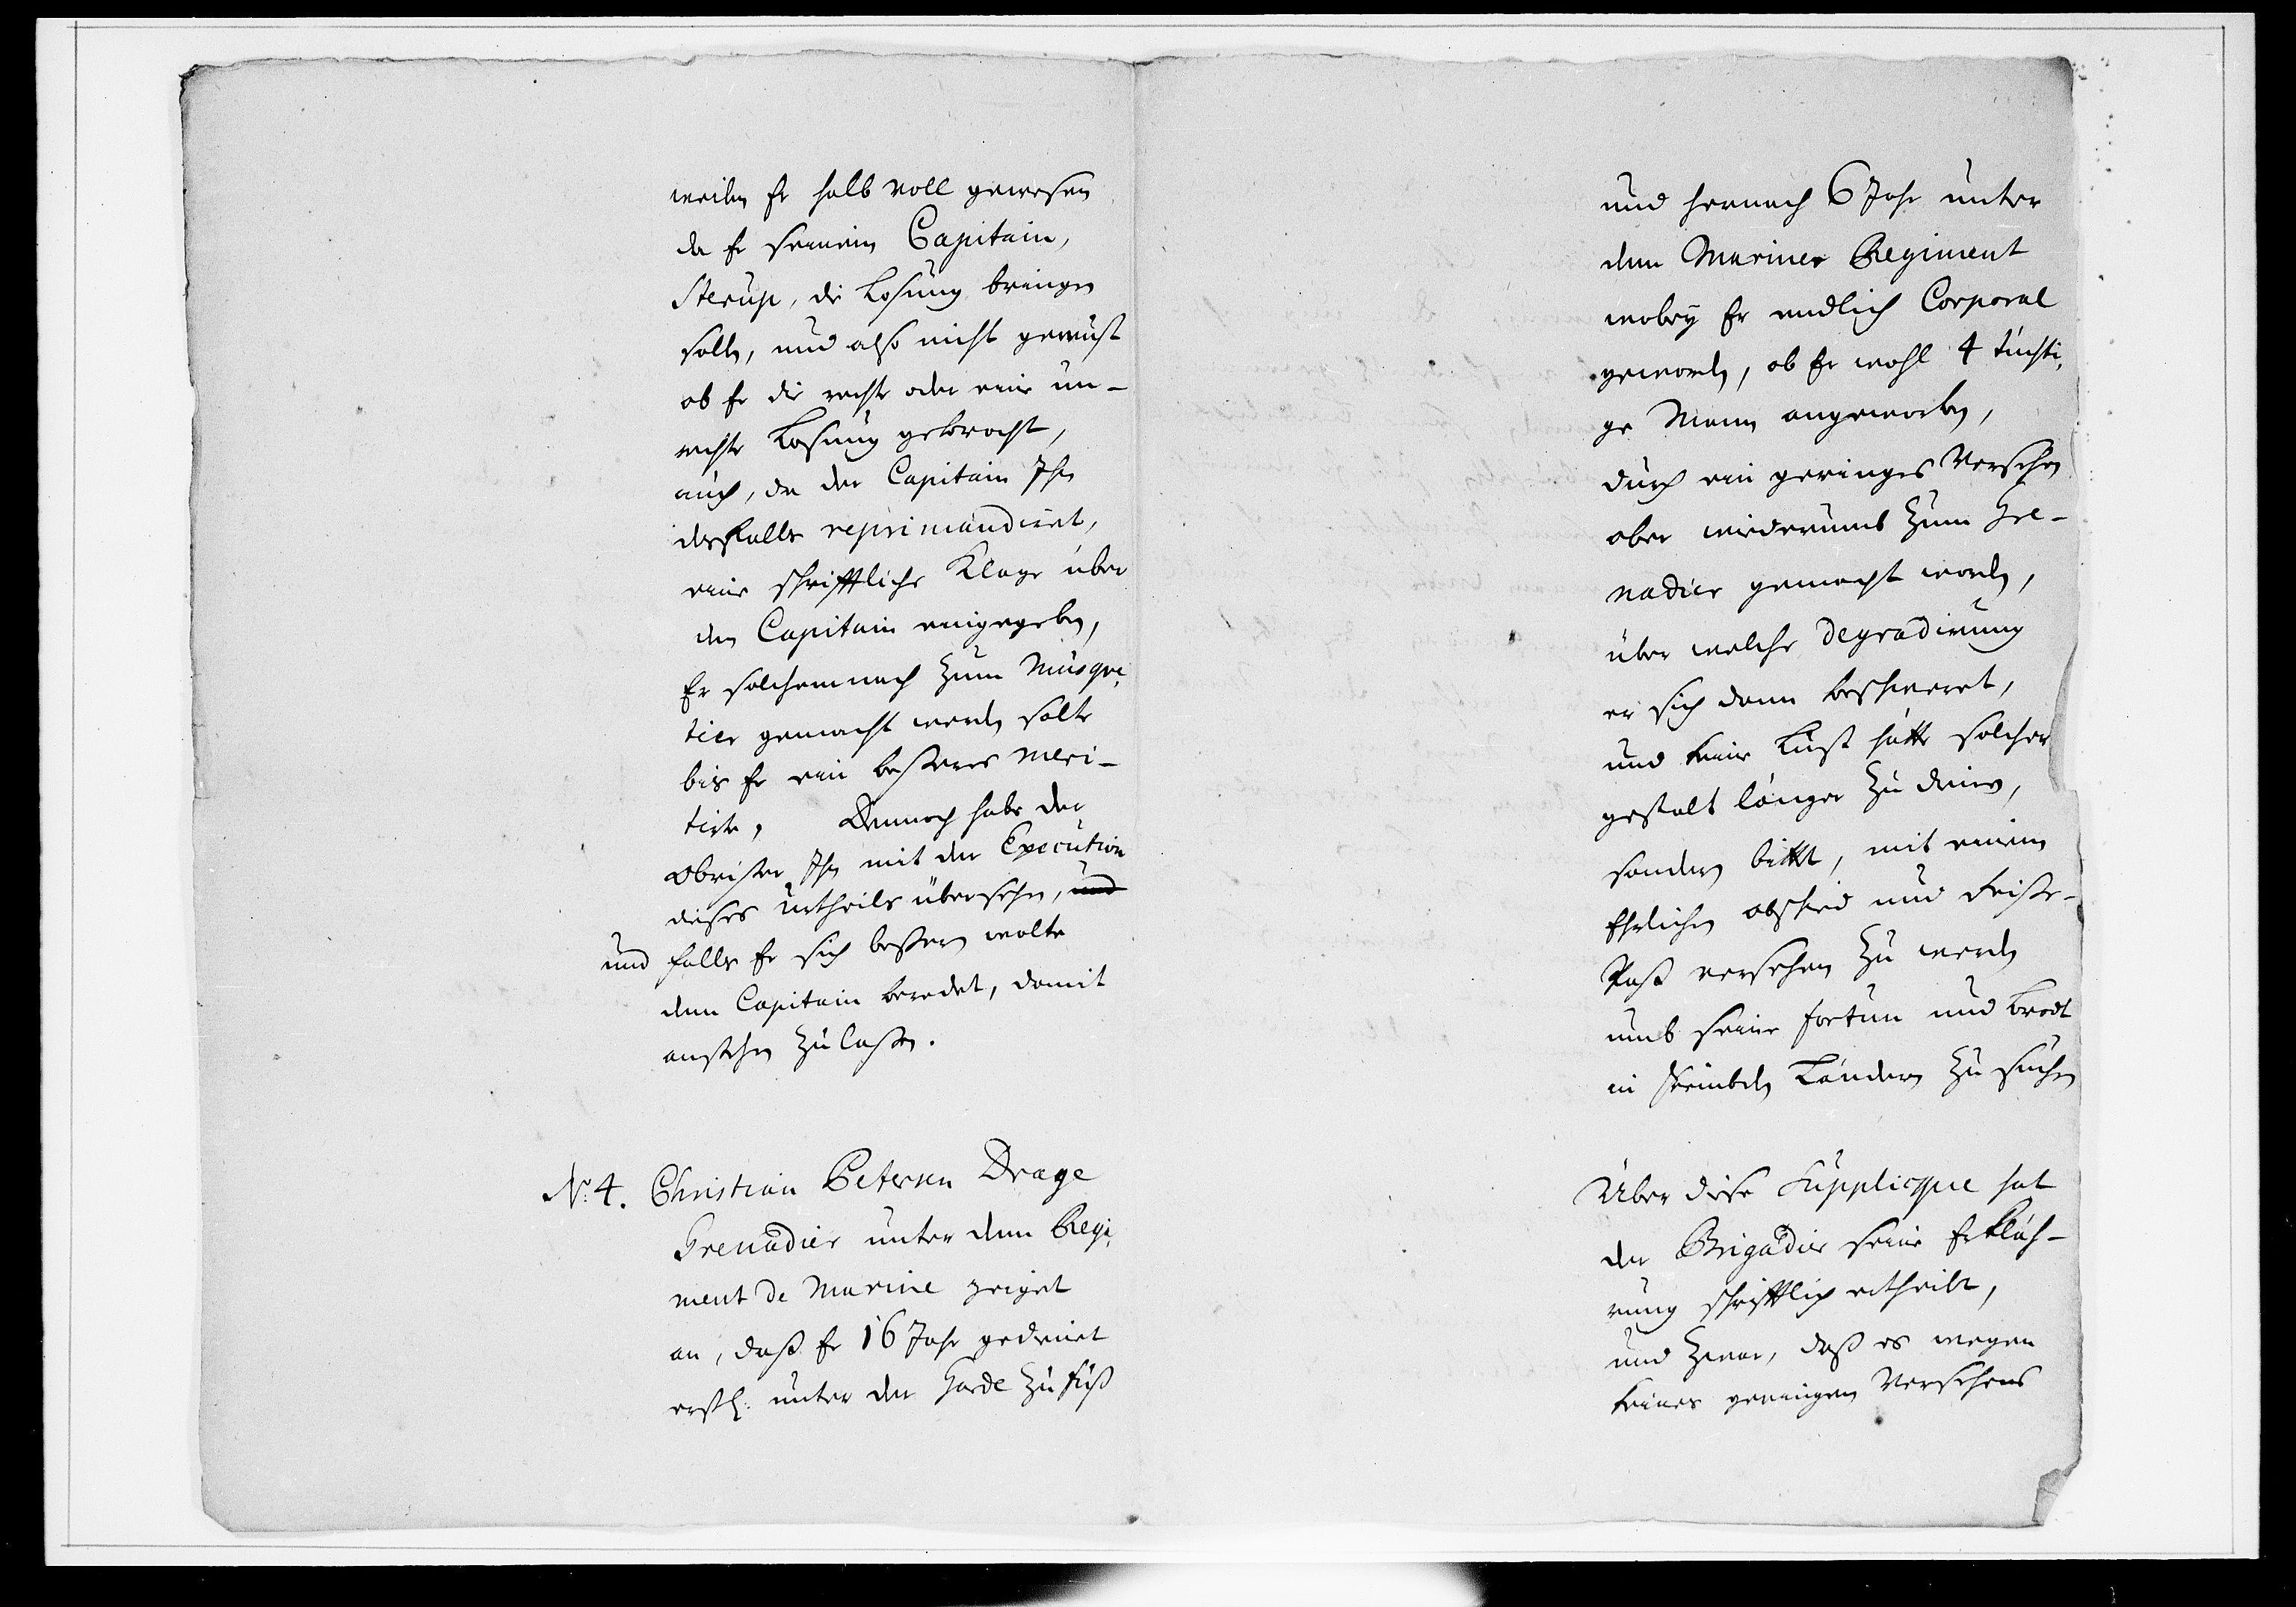 weilen Er halb voll gewesen
da Er seinem Capitain,
Sterup, die Losung bringen
sollen, und also nicht gewust
ob Er die rechte oder eine un-
rechte Losung gebracht,
auch, da der Capitain Ihn
desfalls reprimandiret,
eine schrifftliche Klage über
den Capitain eingegeben,
Er solchemnach zum Musque,
tier gemacht werden solte
bis Er ein besseres meri-
tirte, Dennoch habe der
Obrister Ihn mit der Execution
dieses Urtheils übersehen, und
und falls Er sich bessern wolte
dem Capitain beredet, damit
anstehen zu lassen.
No. 4. Christian Petersen Drage
Grenadier unter dem Regi,
ment de Marine zeiget
an, daß Er 16 Jahr gedienet
erstl: unter der Garde zu Fuß
und hernach 6 Jahr unter
dem Mariner Regiment
wobey Er endlich Corporal
geworden, ob Er wohl 4 tüchti,
ge Mann angeworben,
durch ein geringes Versehen
aber wiederumb zum Gre-
nadier gemacht worden,
über welche Degradirung
er sich dann beschweret,
und keine Lust hätte solcher
gestalt länger zu dienen,
sondern bittet, mit einem
Ehrlichen abschied und Reise-
Paß versehen zu werden
umb seine fortun und brodt
in frembden Ländern zu suchen
Über diese Supplicque hat
der Brigadier seine Erkläh-
rung schrifftlich ertheilet,
und zwar, daß es wegen
keines geringen Versehens